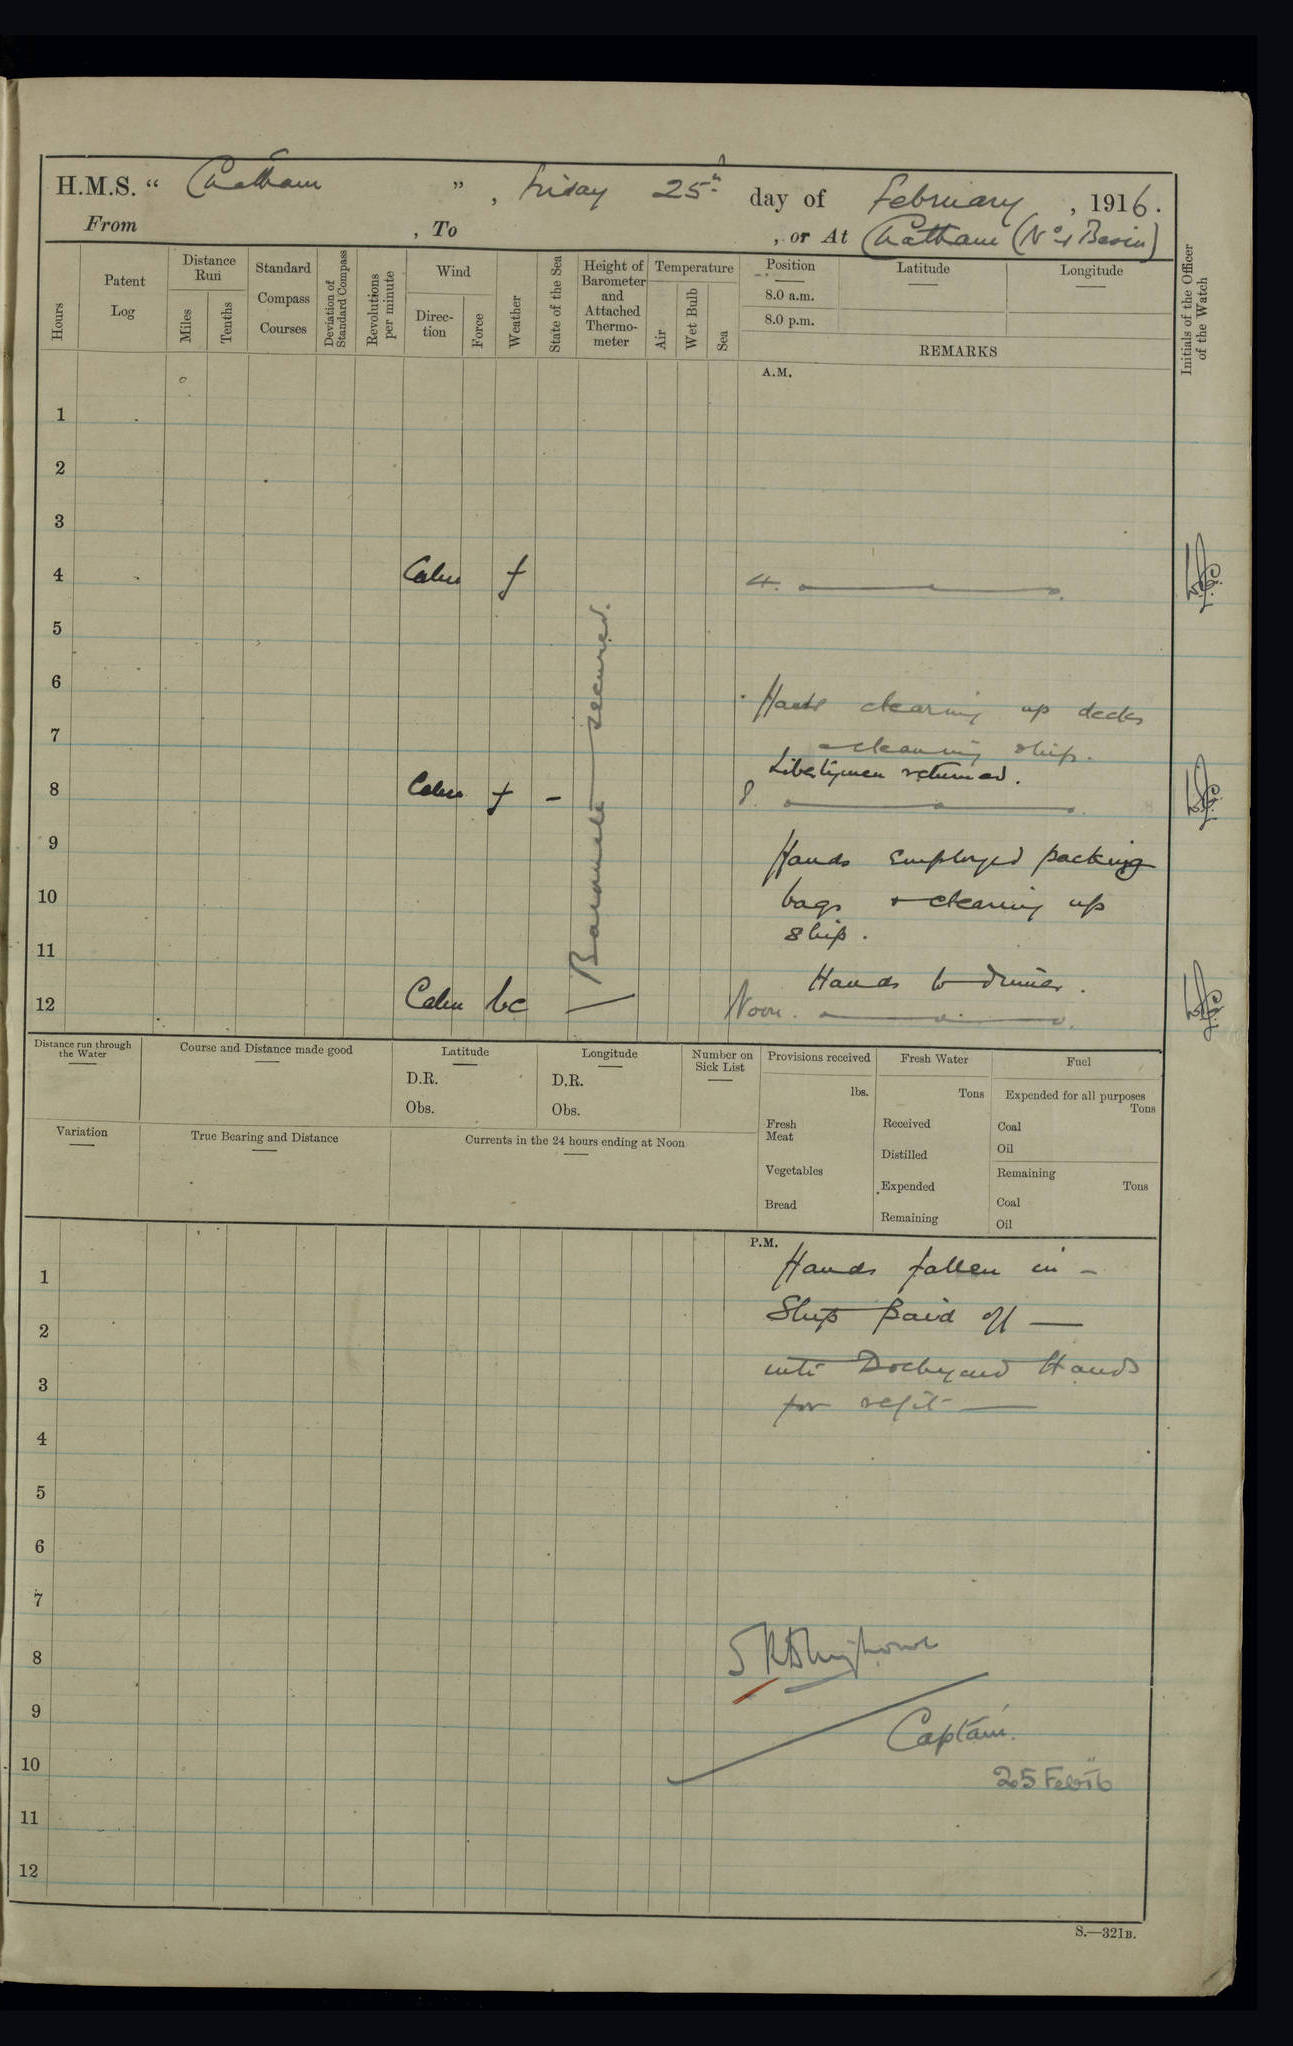 H.M.S. “ Chatham ” , Friday 25th day of February , 1916.
From , To , or At Chatham (No 1 Basin)
Hours
Patent Log
Distance Run
Miles
Tenths
Standard Compass Courses
Deviation of Standard Compass
Revolutions per minute
Wind
Direction
Force
Weather
State of the Sea
Height of Barometer and Attached Thermometer
Temperature
Air
Wet Bulb
Sea
Position
8.0 a.m.
8.0 p.m.
Latitude
Longitude
REMARKS
Initials of the Officer of the Watch
A.M.
1
2
3
4 Calm f 4.
5
6
Hands clearing up decks
7
& cleaning ship.
Libertymen returned.
8 Calm f - 8.
Barometer secured.
9
Hands employed packing
10
bags & clearing up
ship.
11
Hands to dinner.
12 Calm bc Noon.
Distance run through the Water
Course and Distance made good
Latitude
D.R.
Obs.
Longitude
D.R.
Obs.
Number on Sick List
Provisions received
lbs.
Fresh Meat
Vegetables
Bread
Fresh Water
Tons
Received
Distilled
Expended
Remaining
Fuel
Expended for all purposes
Tons
Coal
Oil
Remaining
Tons
Coal
Oil
Variation
True Bearing and Distance
Currents in the 24 hours ending at Noon
P.M.
Hands fallen in –
1
Ship Paid off —
2
into Dockyard Hands
3
for refit —
4
5
6
7
8
9
Captain.
10
25 Feb 16
11
12
S.—321B.